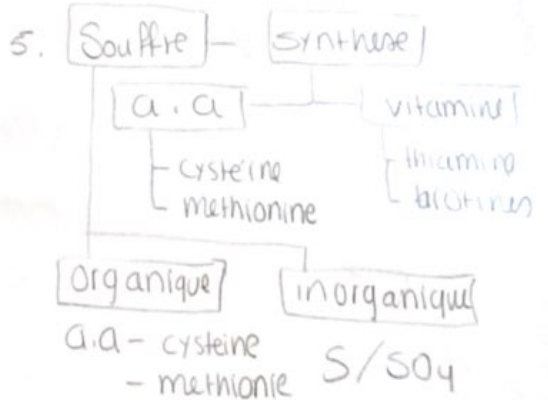 5. Souffre - synthese
a.a vitamine
- cysteine - thiamine
- methionine - biotines
organique inorganique
a.a - cysteine S/SO4
- methionie